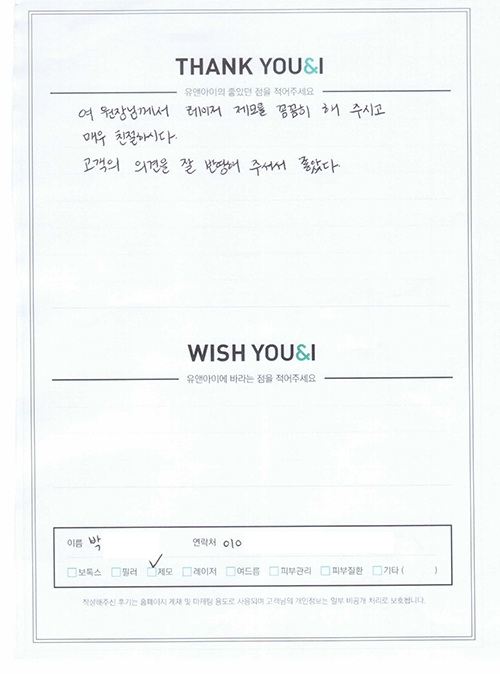 THANK YOU&I
유앤아이의 좋았던 점을 적어주세요
여 원장님께서 레이저 제모를 꼼꼼히 해 주시고
매우 친절하시다.
고객의 의견을 잘 반영해 주셔서 좋았다.
WISH YOU&I
유앤아이에 바라는 점을 적어주세요
이름 박 연락처 010
보톡스 필러 제모 레이저 여드름 피부관리 피부질환 기타 ( )
작성해주신 후기는 홈페이지 게재 및 마케팅 용도로 사용되며 고객님의 개인정보는 일부 비공개 처리로 보호됩니다.